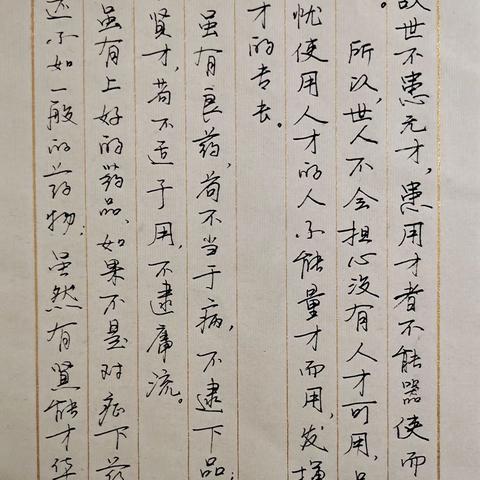 故世不患无才,患用才者不能器使而
。所以,世人不会担心没有人才可用,
忧使用人才的人不能量才而用,发挥
才的专长。
虽有良药,苟不当于病,不逮下品;
贤才,苟不适于用,不逮庸流。
虽有上好的药品,如果不是对症下药
还不如一般的药物;虽然有贤能才华